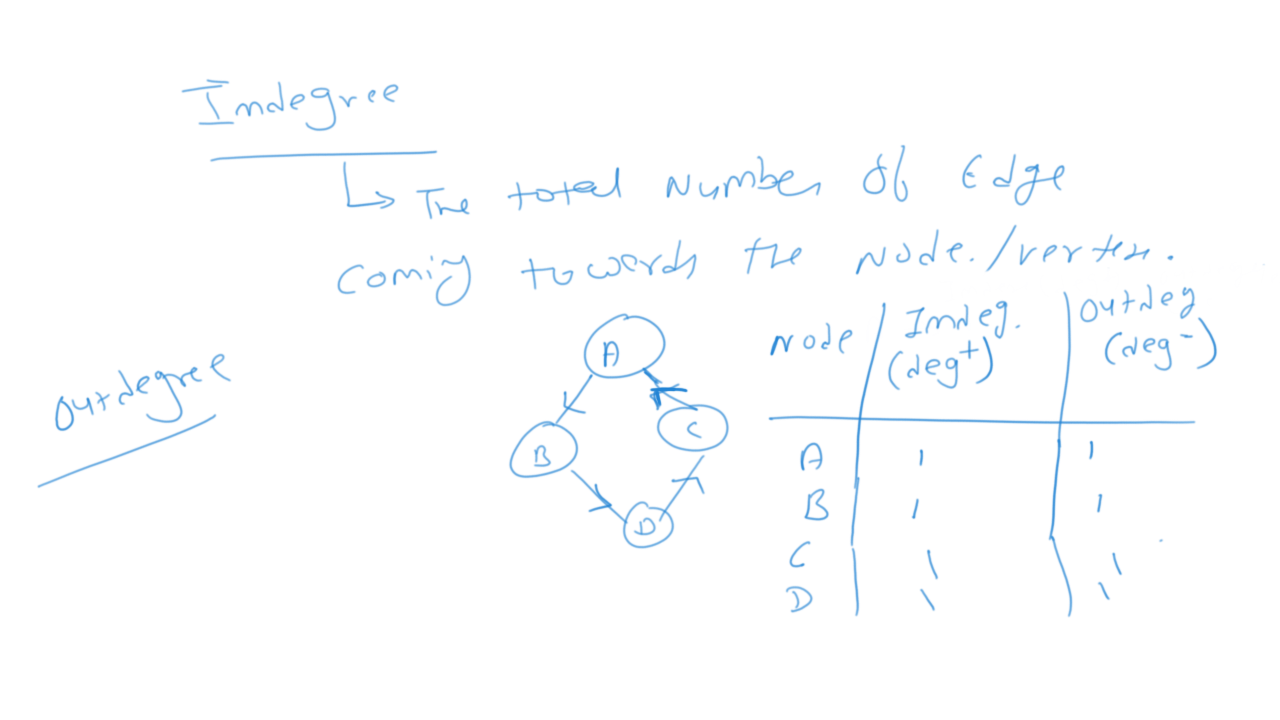 Indegree
The total Number of Edge
coming towards the Node./vertex.
Outdegree
A
B
C
D
Node Indeg. (deg+) Outdeg (deg-)
A 1 1
B 1 1
C 1 1
D 1 1